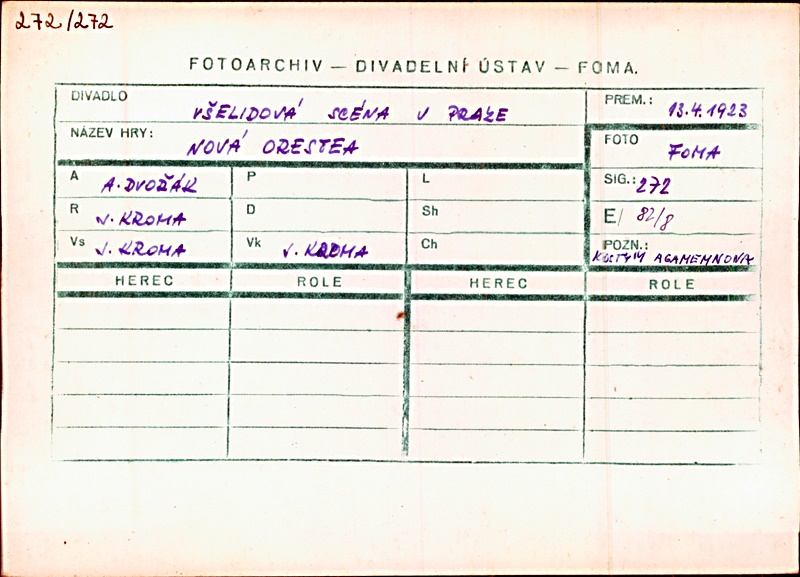 272/272
FOTOARCHIV — DIVADELNÍ ÚSTAV — FOMA.
DIVADLO VŠELIDOVÁ SCÉNA V PRAZE
PREM.: 13.4.1923
NÁZEV HRY: NOVÁ ORESTEA
FOTO FOMA
A A. DVOŘÁK P L
SIG.: 272
R J. KROMA D Sh
E/ 82/8
Vs J. KROMA Vk J. KROMA Ch
POZN.: KOSTYM AGAMEMNONA
HEREC ROLE HEREC ROLE